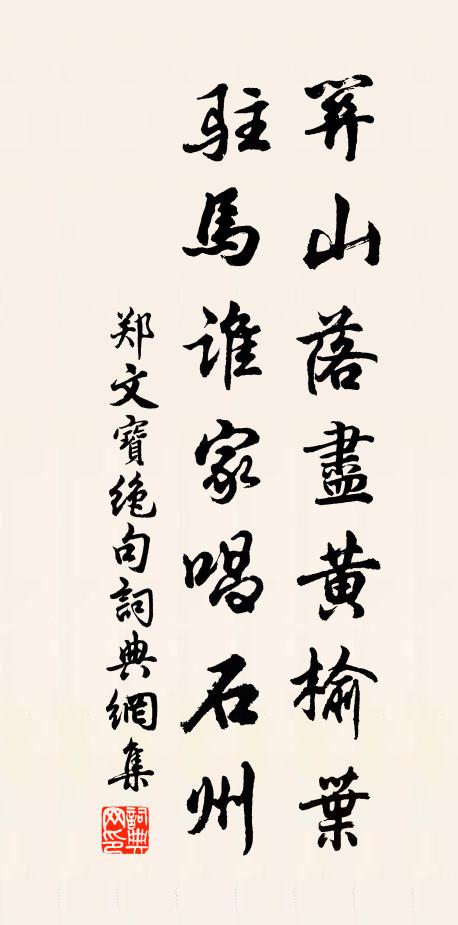 關山落盡黄榆葉
駐馬誰家唱石州
郑文寶絶句詞典網集
詞典网印